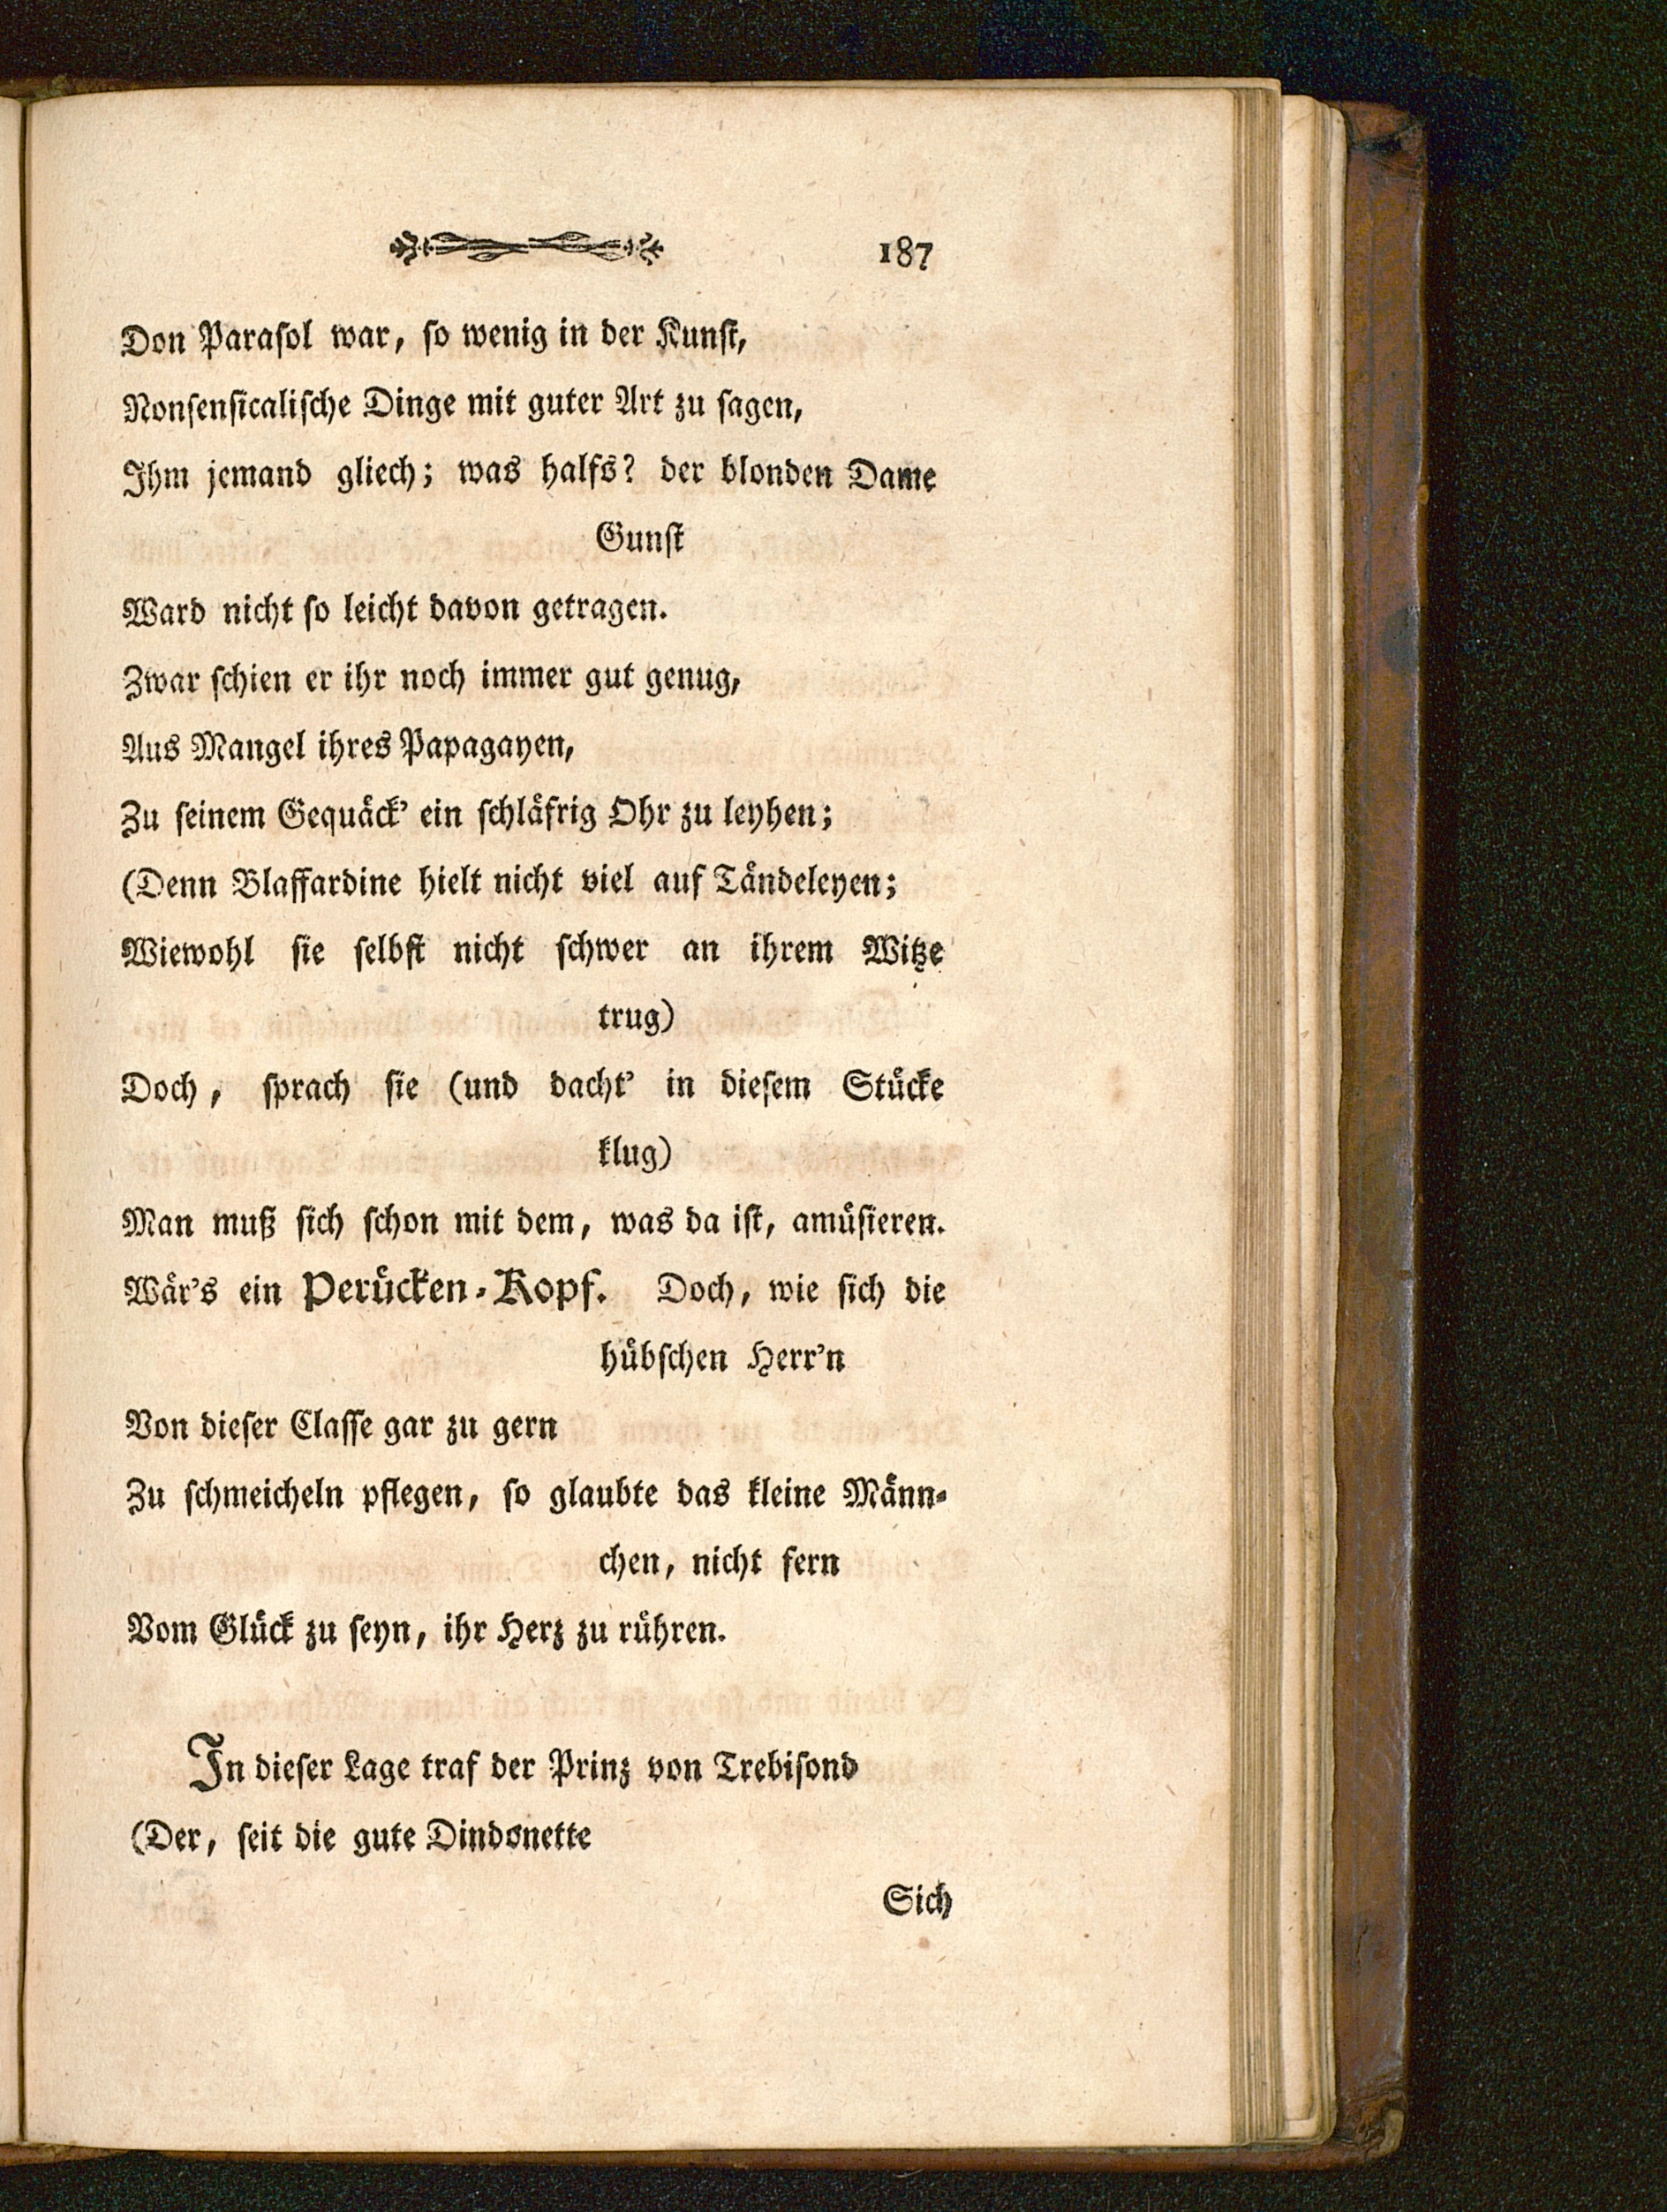 187
Don Paraſol war, ſo wenig in der Kunſt,
Nonſenſicaliſche Dinge mit guter Art zu ſagen,
Ihm jemand gliech; was halfs? der blonden Dame
Gunſt
Ward nicht ſo leicht davon getragen.
Zwar ſchien er ihr noch immer gut genug,
Aus Mangel ihres Papagayen,
Zu ſeinem Gequäck’ ein ſchläfrig Ohr zu leyhen;
(Denn Blaffardine hielt nicht viel auf Tändeleyen;
Wiewohl ſie ſelbſt nicht ſchwer an ihrem Witze
trug)
Doch, ſprach ſie (und dacht’ in dieſem Stücke
klug)
Man muß ſich ſchon mit dem, was da iſt, amüſieren.
Wär’s ein Perücken-Kopf. Doch, wie ſich die
hübſchen Herr’n
Von dieſer Claſſe gar zu gern
Zu ſchmeicheln pflegen, ſo glaubte das kleine Männ-
chen, nicht fern
Vom Glück zu ſeyn, ihr Herz zu rühren.
In dieſer Lage traf der Prinz von Trebiſond
(Der, ſeit die gute Dindonette
Sich